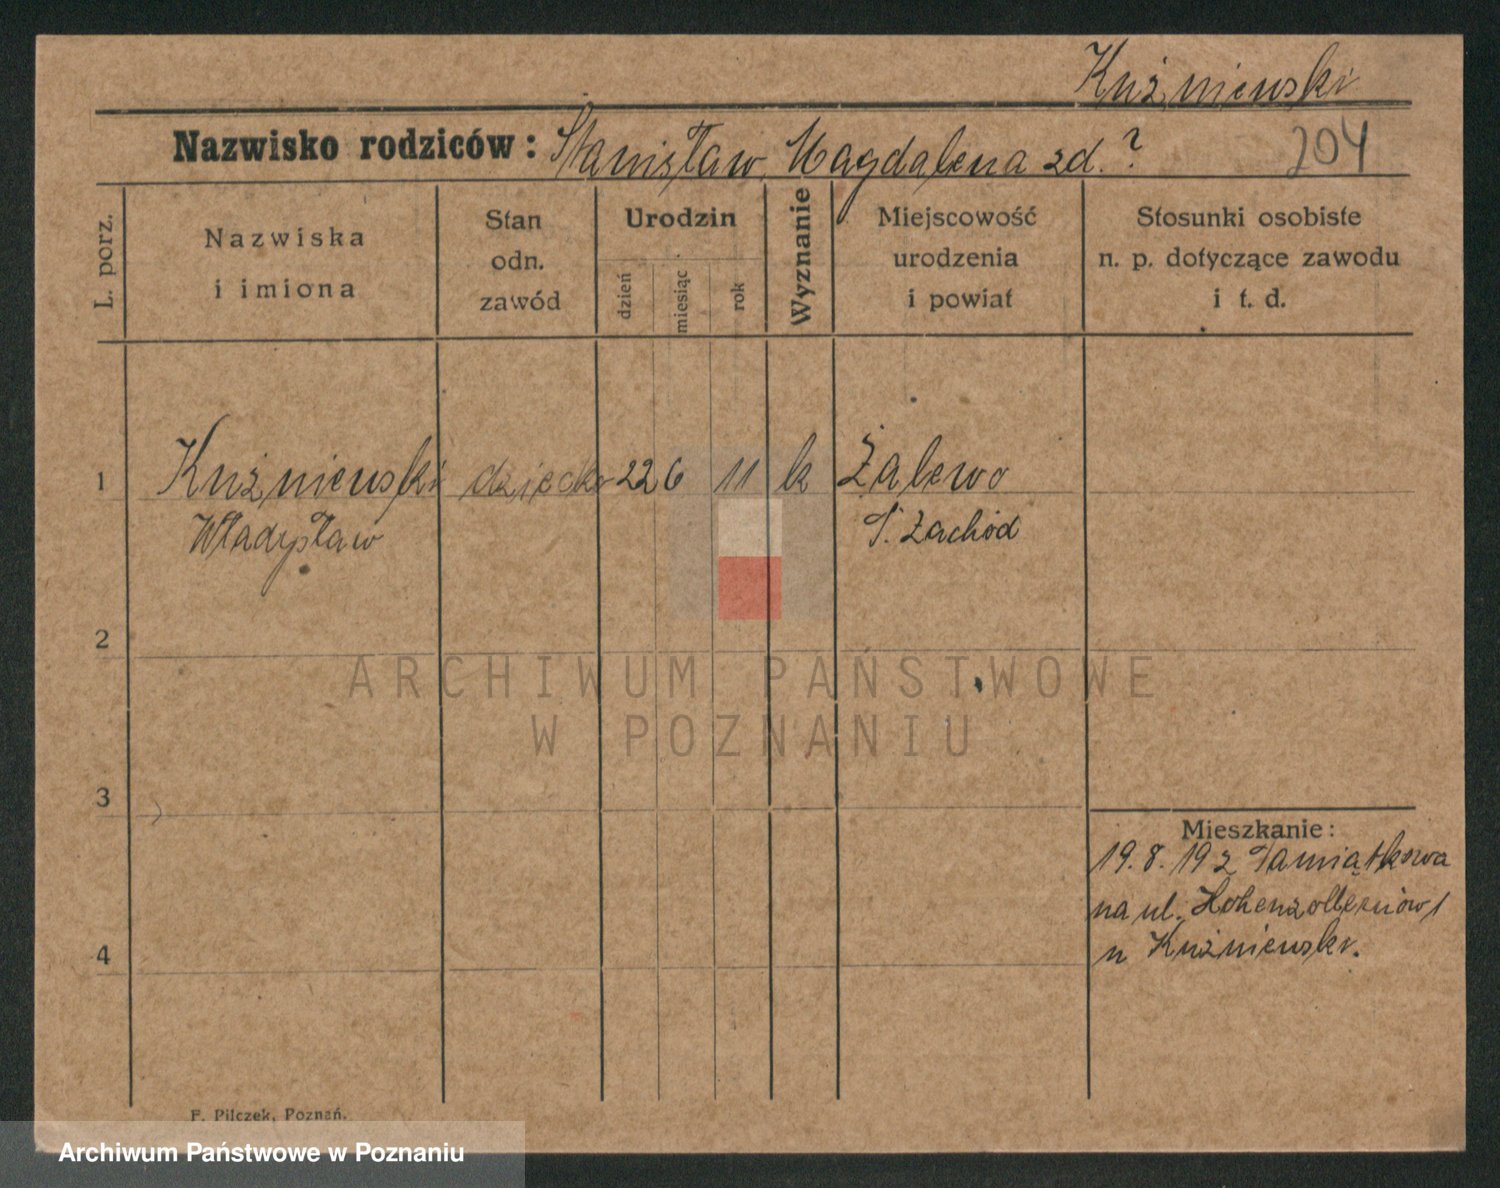 Kuźniewski
Nazwisko rodziców: Stanisław, Magdalena zd.? 204
L. porz.
Nazwiska
i imiona
Stan
odn.
zawód
Urodzin
dzień
miesiąc
rok
Wyznanie
Miejscowość
urodzenia
i powiat
Stosunki osobiste
n. p. dotyczące zawodu
i t. d.
1 Kuźniewski dziecko 22 6 11 k Żalewo
Władysław Ś. Zachód
2
ARCHIWUM PAŃSTWOWE
W POZNANIU
3
Mieszkanie:
19. 8. 19 z
na ul. Hohenzollernów 1
4
u Kuźniewski.
F. Pilczek, Poznań.
Archiwum Państwowe w Poznaniu